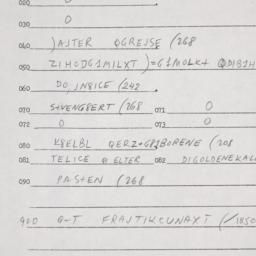 020 0
030 0
040 )AJTER QGREJSE (268
050 ZIHODG1MILXT )=G1MOLK+ QDIB1H
060 DO, IN8ICE (242.
070 S+VENGBERT (268 071 0
072 0 073 0
080 K8ELBL QERZ=GP1BORENE (208
081 TELICE @ ELTER 082 DIGOLDENEKAL
090 PASTEN (268
900 G-T FRAJTIKCUNAXT (/1850